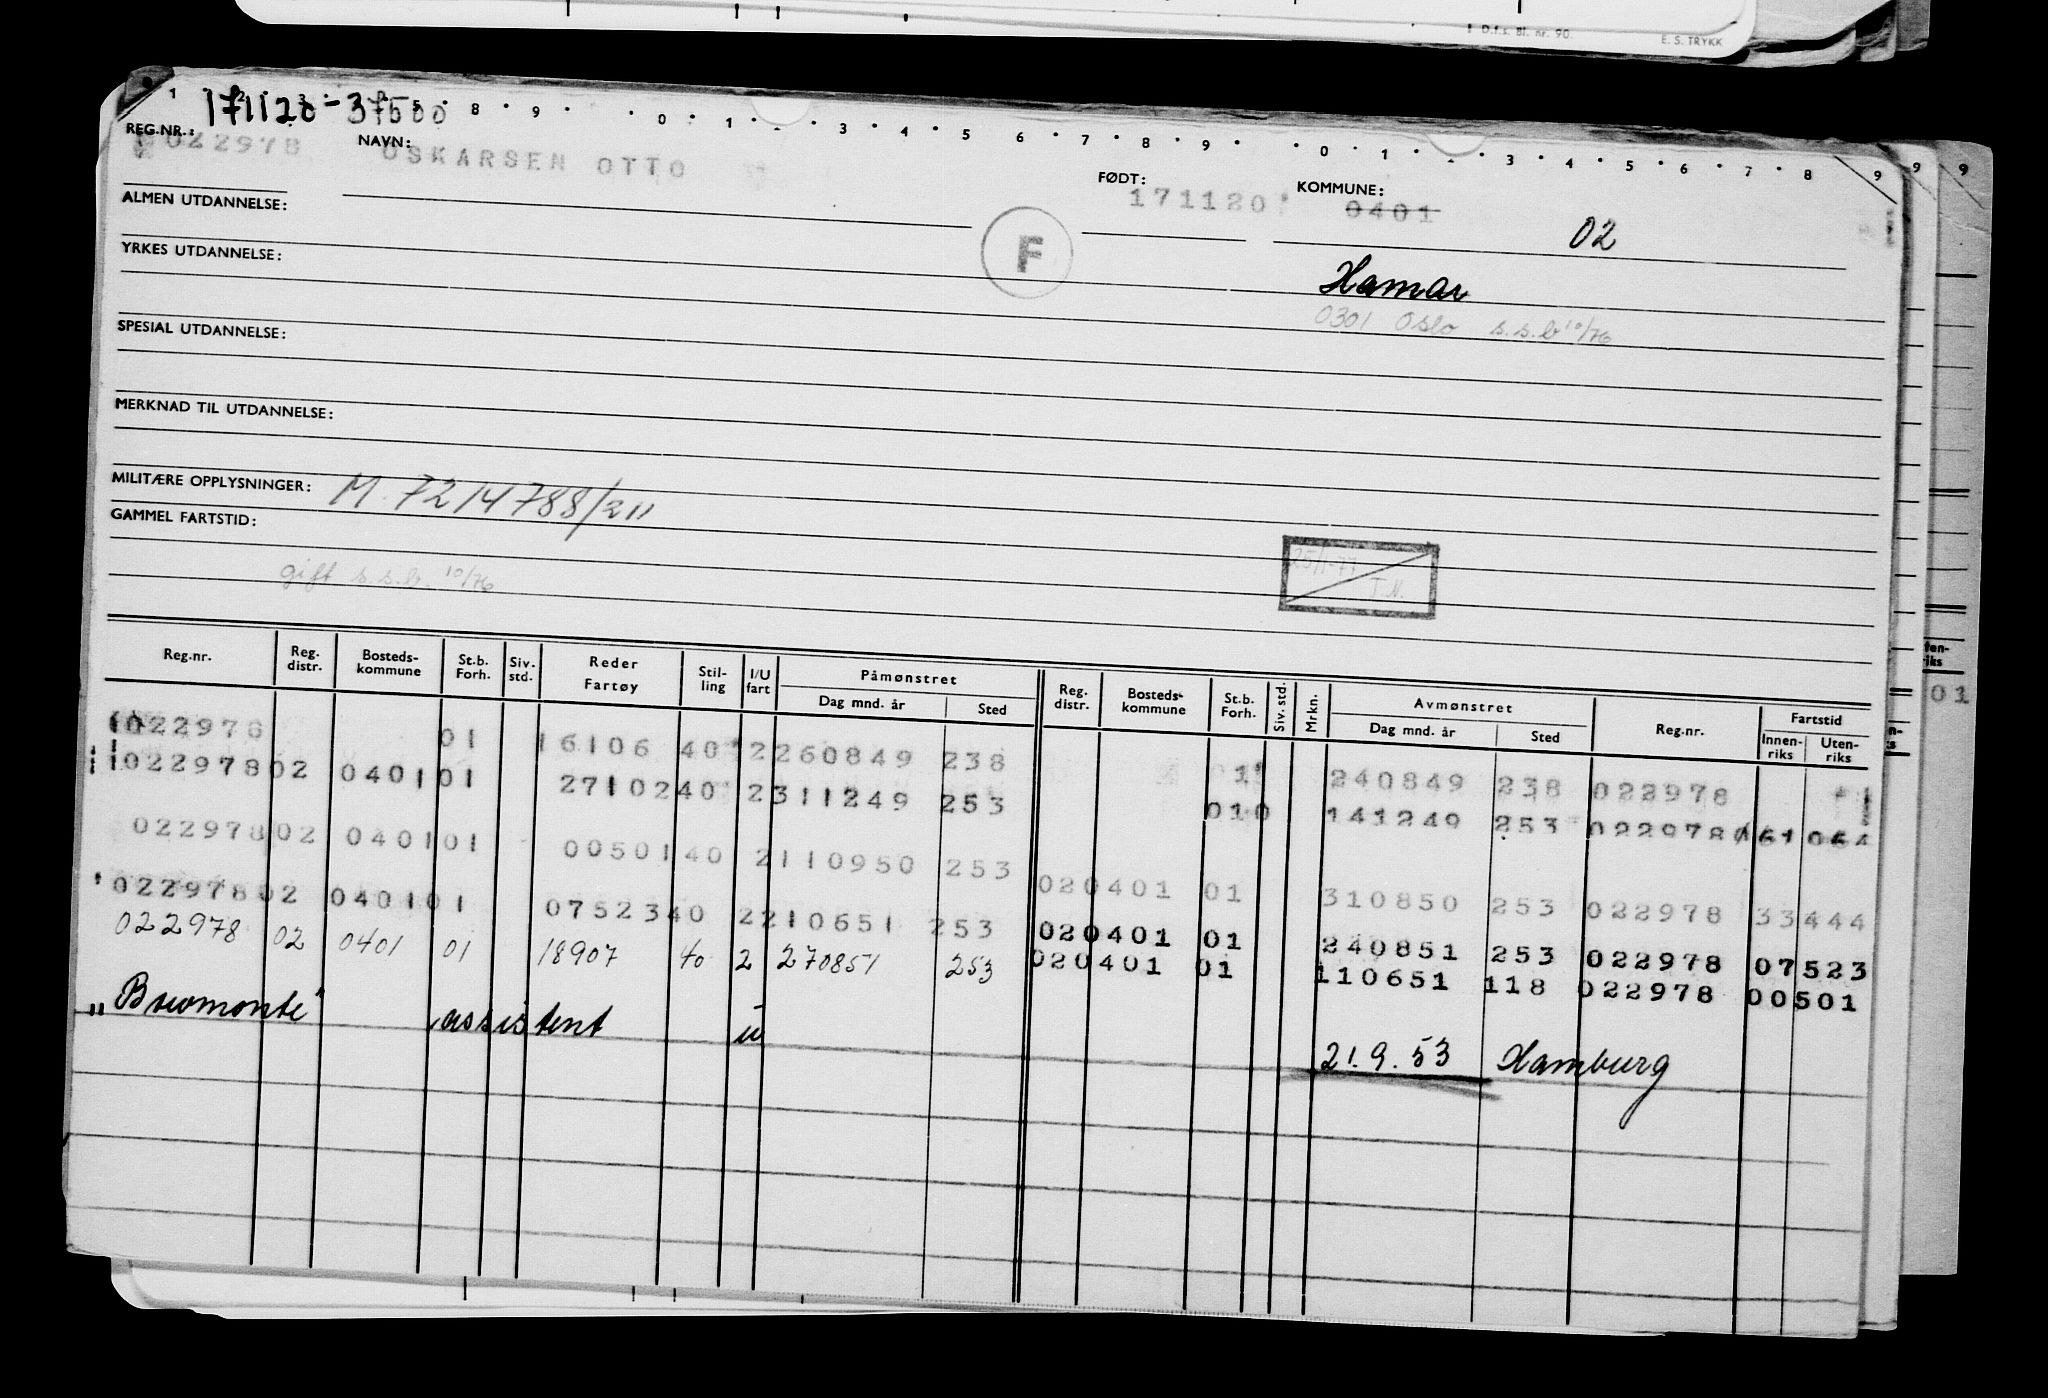 D.f.s. Bl. nr. 90.
E. S. TRYKK
171120-37500
1 8 9 0 1 2 3 4 5 6 7 8 9 0 1 2 3 4 5 6 7 8 9 9 9
REG.NR.: 022978 NAVN: OSKARSEN OTTO FØDT: 171120 KOMMUNE: 0401
02
ALMEN UTDANNELSE:
F
YRKES UTDANNELSE:
Hamar
0301 Oslo s.s.b 10/76
SPESIAL UTDANNELSE:
MERKNAD TIL UTDANNELSE:
MILITÆRE OPPLYSNINGER: M. 7214788/211
GAMMEL FARTSTID:
25/1-77
T.N.
gift s.s.b. 10/76
Reg.nr. Reg. distr. Bosteds- kommune St.b. Forh. Siv. std. Reder Fartøy Stil- ling I/U fart Påmønstret Dag mnd. år Sted Reg. distr. Bosteds- kommune St.b. Forh. Siv. std. Mrkn. Avmønstret Dag mnd. år Sted Reg.nr. Fartstid Innen- riks Uten- riks
022978 01 16106 40 2 260849 238 1 240849 238 022978
022978 02 0401 01 27102 40 2 311249 253 010 141249 253 022978 61064
022978 02 0401 01 00501 40 2 110950 253 02 0401 01 310850 253 022978 33444
022978 02 0401 01 07523 40 2 210651 253 02 0401 01 240851 253 022978 07523
022978 02 0401 01 18907 40 2 270851 253 02 0401 01 110651 118 022978 00501
"Breomonte" assistent u 21.9.53 Hamburg
01